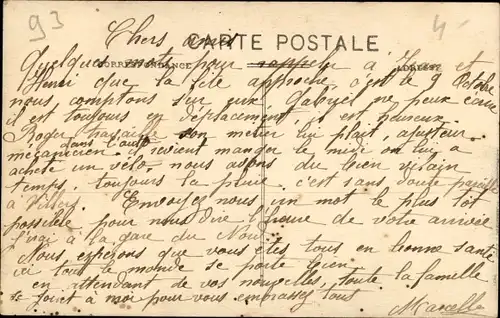 93
4
Chers amis
CARTE POSTALE
CORRESPONDANCE
Quelques mot pour à Jean et
Henri que la fête approche, c'est le 9 Octobre
nous comptons sur eux Gabriel ne peux
il est toujours en déplacement, il est heureux
Roger travaille son metier lui plait, ajusteur
mécanicien dans l'auto il revient manger le midi on lui a
acheté un vélo. nous avons du bien vilain
temps, toujours la pluie c'est sans doute pareille
à Envoyez nous un mot le plus tôt
possible pour nous dire l'heure de votre arrivée
à la gare du Nord
Nous espérons que vous êtes tous en bonne santé
ici tous le monde se porte bien
en attendant de vos nouvelles, toute la famille
se joint à moi pour vous embrassez tous
Marcelle